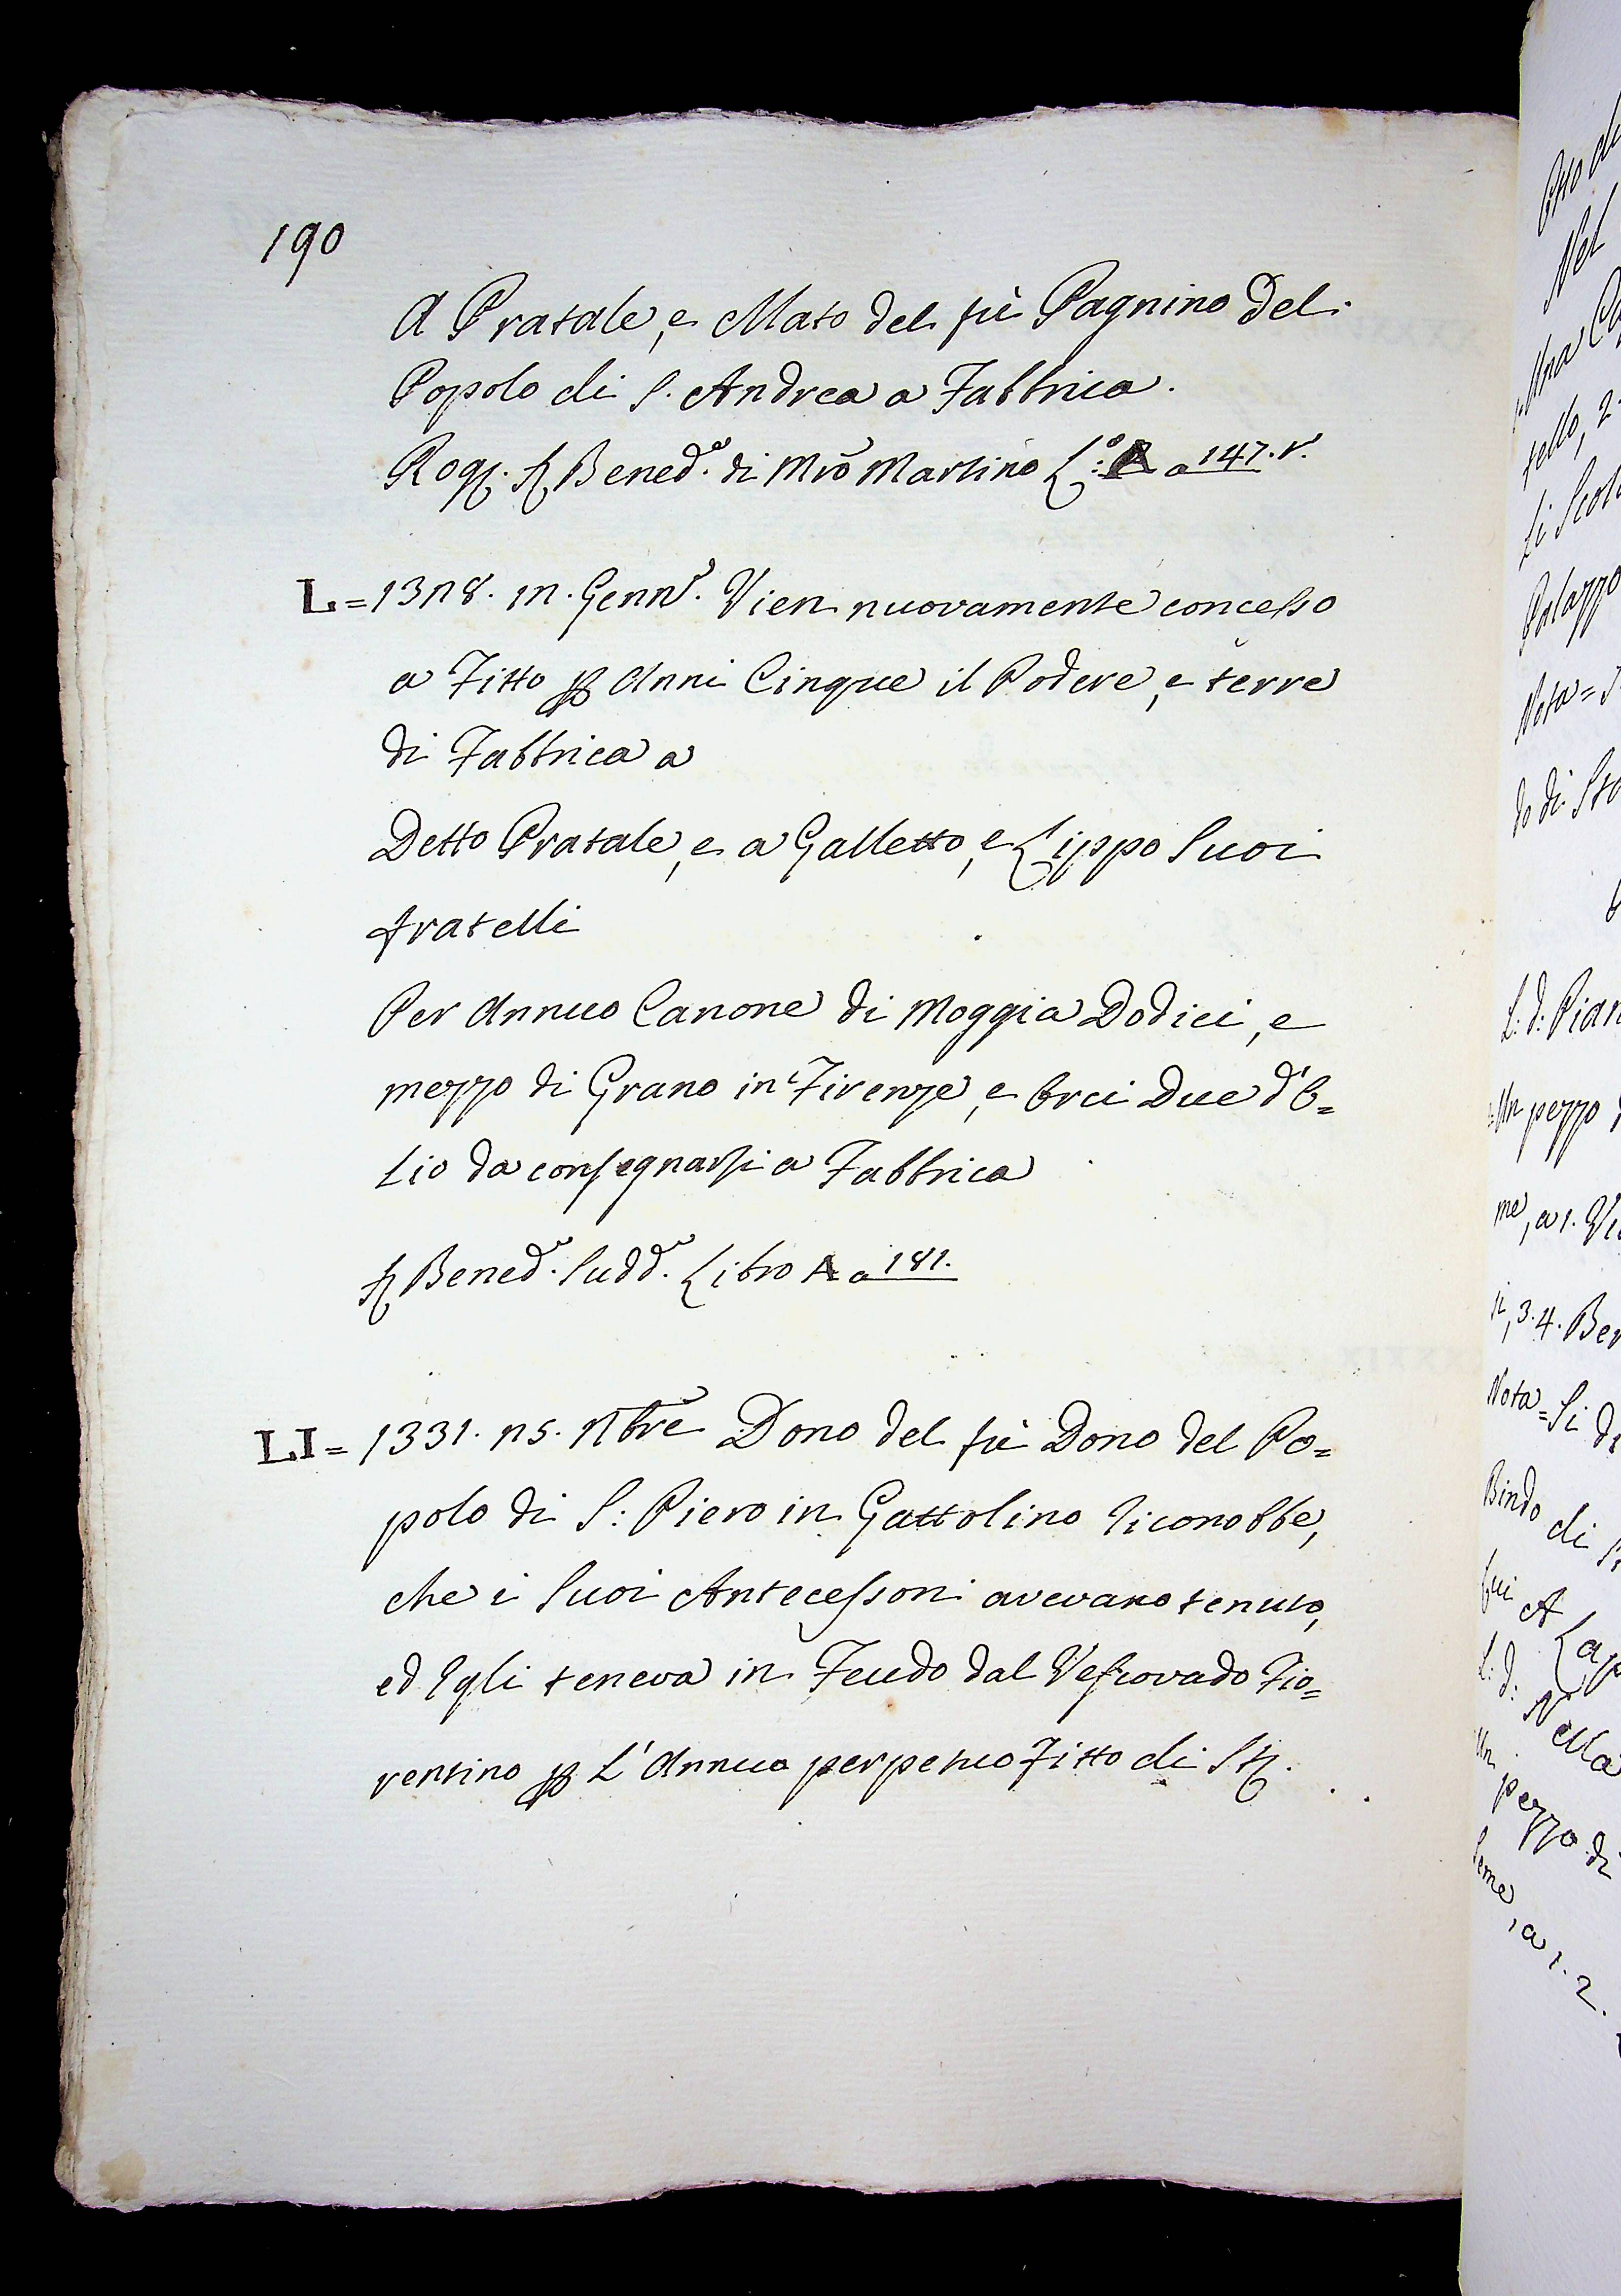 190
A Pratale, e Mato del fù Pagnino del
Popolo di S. Andrea a Fabbrica.
Rog. Bened.º di Mrõ Martino L.º: A a 147. v.
L = 1328. in. Genn.º Vien nuovamente concesso
a Fitto Anni Cinque il Podere, e terre
di Fabbrica a
Detto Pratale, e a Galletto, e Lippo Suoi
fratelli
Per Annuo Canone di Moggia Dodici, e
mezzo di Grano in Firenze, e Orci Due d'O=
lio da consegnarsi a Fabbrica
Bened.º Sudd.º Libro A a 181.
LI = 1331. 25. Dono del fù Dono del Po=
polo di S: Piero in Gattolino riconobbe,
che i Suoi Antecessori avevano tenuto,
ed Egli teneva in Feudo dal Vescovado Fio=
rentino L'Annuo perpetuo Fitto di
Nel
Una
tello, 2.
Palazzo
Nota =
do di
L: d: Pian
Un pezzo
me, a 1.
3. 4. Ber
Nota = Si
Bindo di
qui A
L: d: Nella
Un pezzo di
Seme, a 1. 2.